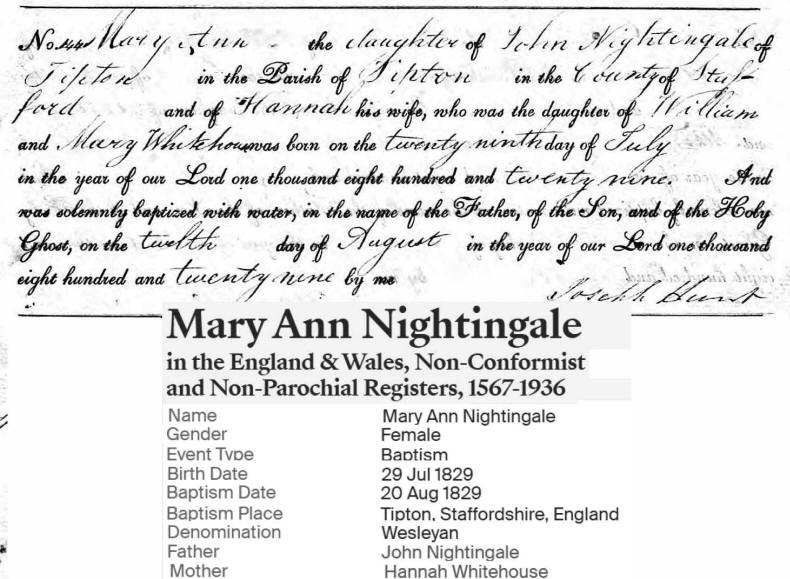 No. 444 Mary Ann the daughter of John Nightingale of
Tipton in the Parish of Tipton in the County of Staf-
ford and of Hannah his wife, who was the daughter of William
and Mary Whitehouse was born on the twenty ninth day of July
in the year of our Lord one thousand eight hundred and twenty nine. And
was solemnly baptized with water, in the name of the Father, of the Son, and of the Holy
Ghost, on the twelth day of August in the year of our Lord one thousand
eight hundred and twenty nine by me
Joseph Hunt
Mary Ann Nightingale
in the England & Wales, Non-Conformist
and Non-Parochial Registers, 1567-1936
Name Mary Ann Nightingale
Gender Female
Event Type Baptism
Birth Date 29 Jul 1829
Baptism Date 20 Aug 1829
Baptism Place Tipton, Staffordshire, England
Denomination Wesleyan
Father John Nightingale
Mother Hannah Whitehouse